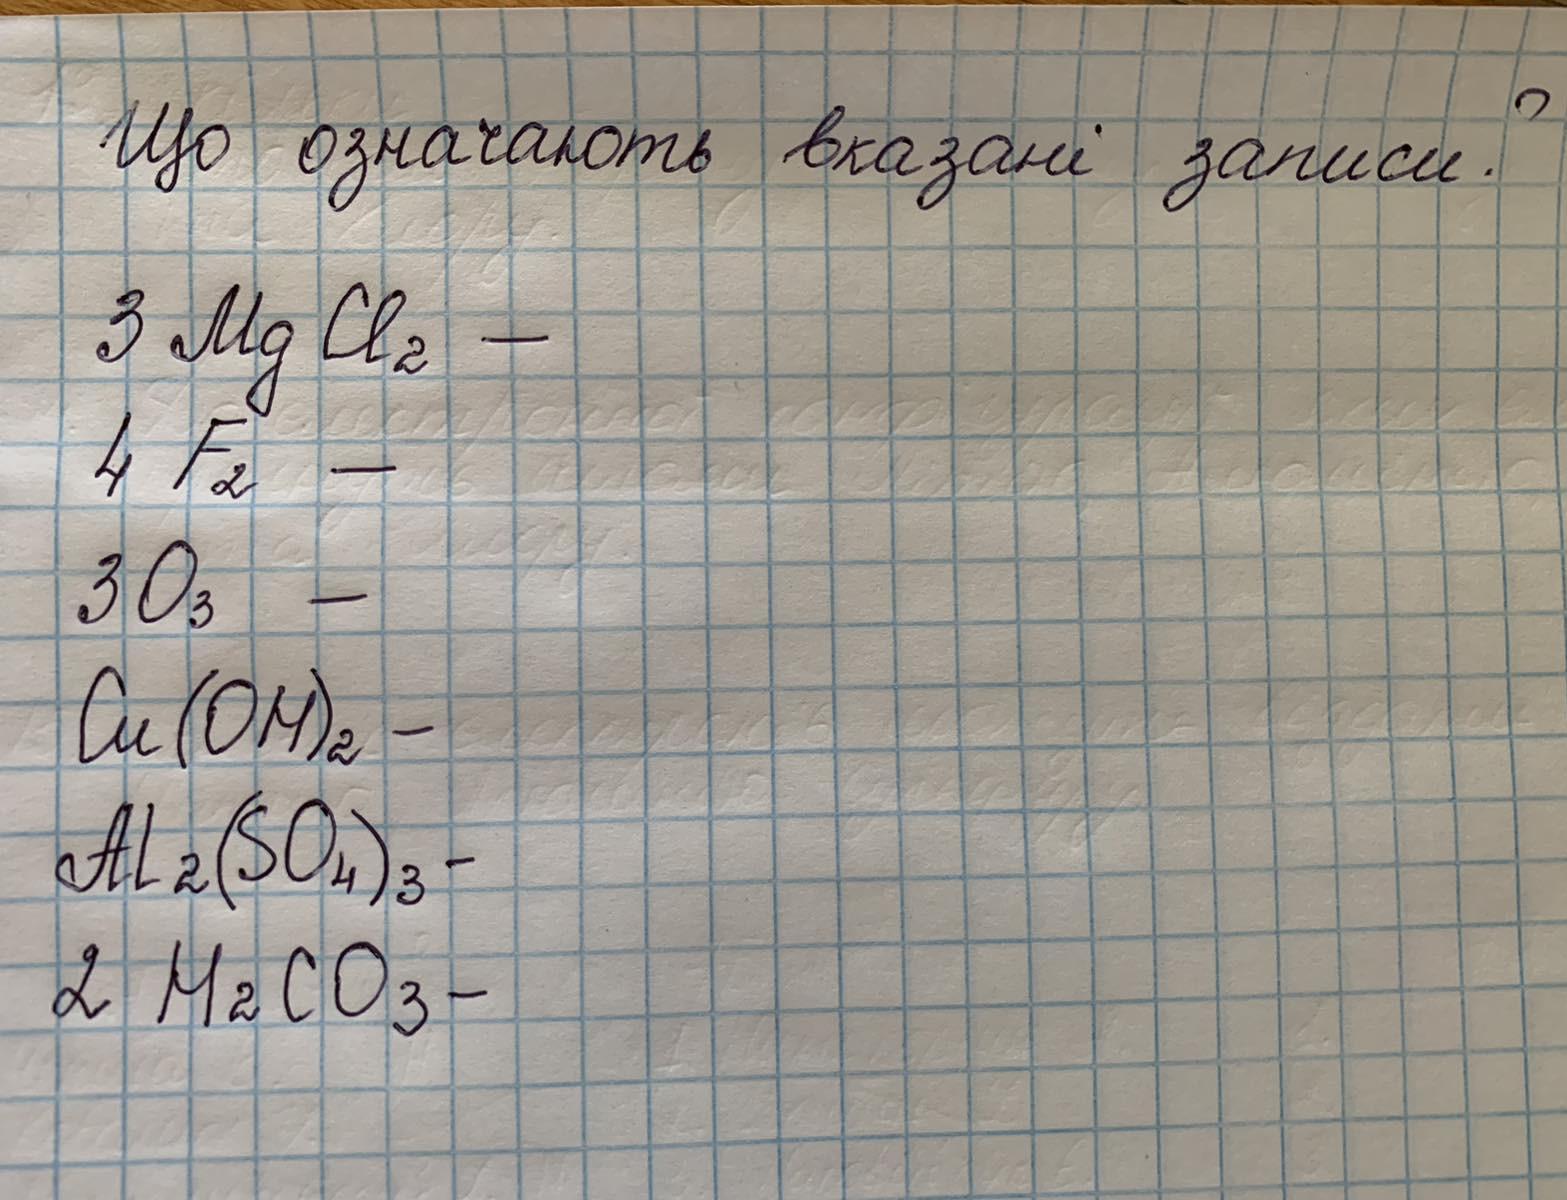 Що означають вказані записи?
3 MgCl₂ —
4 F₂ —
3O₃ —
Cu(OH)₂ —
Al₂(SO₄)₃ -
2 H₂CO₃ -